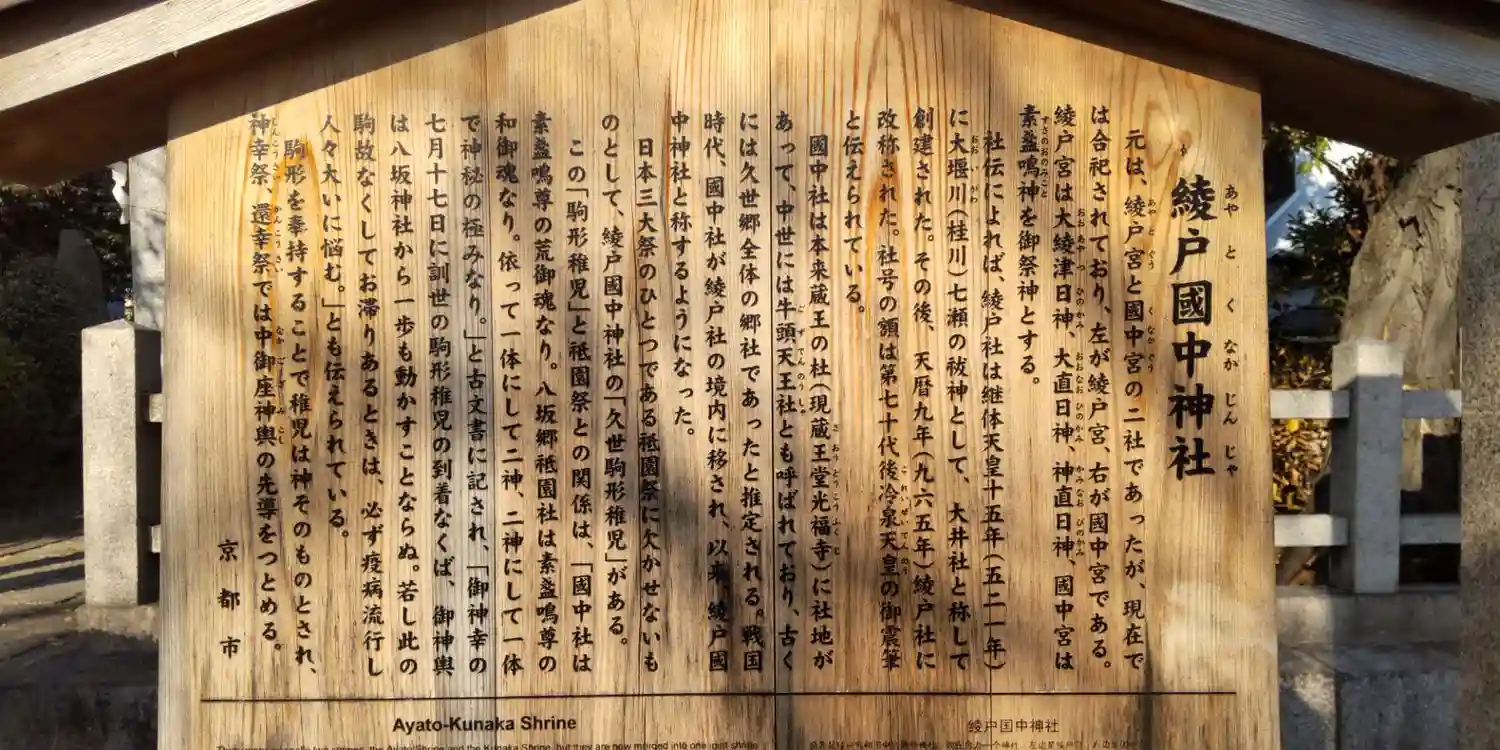 綾戸國中神社
あやとくなかじんじゃ
元は、綾戸宮と國中宮の二社であったが、現在で
は合祀されており、左が綾戸宮、右が國中宮である。
綾戸宮は大綾津日神、大直日神、神直日神、國中宮は
素盞鳴神を御祭神とする。
社伝によれば、綾戸社は継体天皇十五年(五二一年)
に大堰川(桂川)七瀬の祓神として、大井社と称して
創建された。その後、天暦九年(九六五年)綾戸社に
改称された。社号の額は第七十代後冷泉天皇の御震筆
と伝えられている。
國中社は本来蔵王の杜(現蔵王堂光福寺)に社地が
あって、中世には牛頭天王社とも呼ばれており、古く
には久世郷全体の郷社であったと推定される。戦国
時代、國中社が綾戸社の境内に移され、以来、綾戸國
中神社と称するようになった。
日本三大祭のひとつである祇園祭に欠かせないも
のとして、綾戸國中神社の「久世駒形稚児」がある。
この「駒形稚児」と祇園祭との関係は、「國中社は
素盞鳴尊の荒御魂なり。八坂郷祇園社は素盞鳴尊の
和御魂なり。依って一体にして二神、二神にして一体
で神秘の極みなり。」と古文書に記され、「御神幸の
七月十七日に訓世の駒形稚児の到着なくば、御神輿
は八坂神社から一歩も動かすことならぬ。若し此の
駒故なくしてお滞りあるときは、必ず疫病流行し
人々大いに悩む。」とも伝えられている。
駒形を奉持することで稚児は神そのものとされ、
神幸祭、還幸祭では中御座神輿の先導をつとめる。
京都市
Ayato-Kunaka Shrine
綾戸国中神社